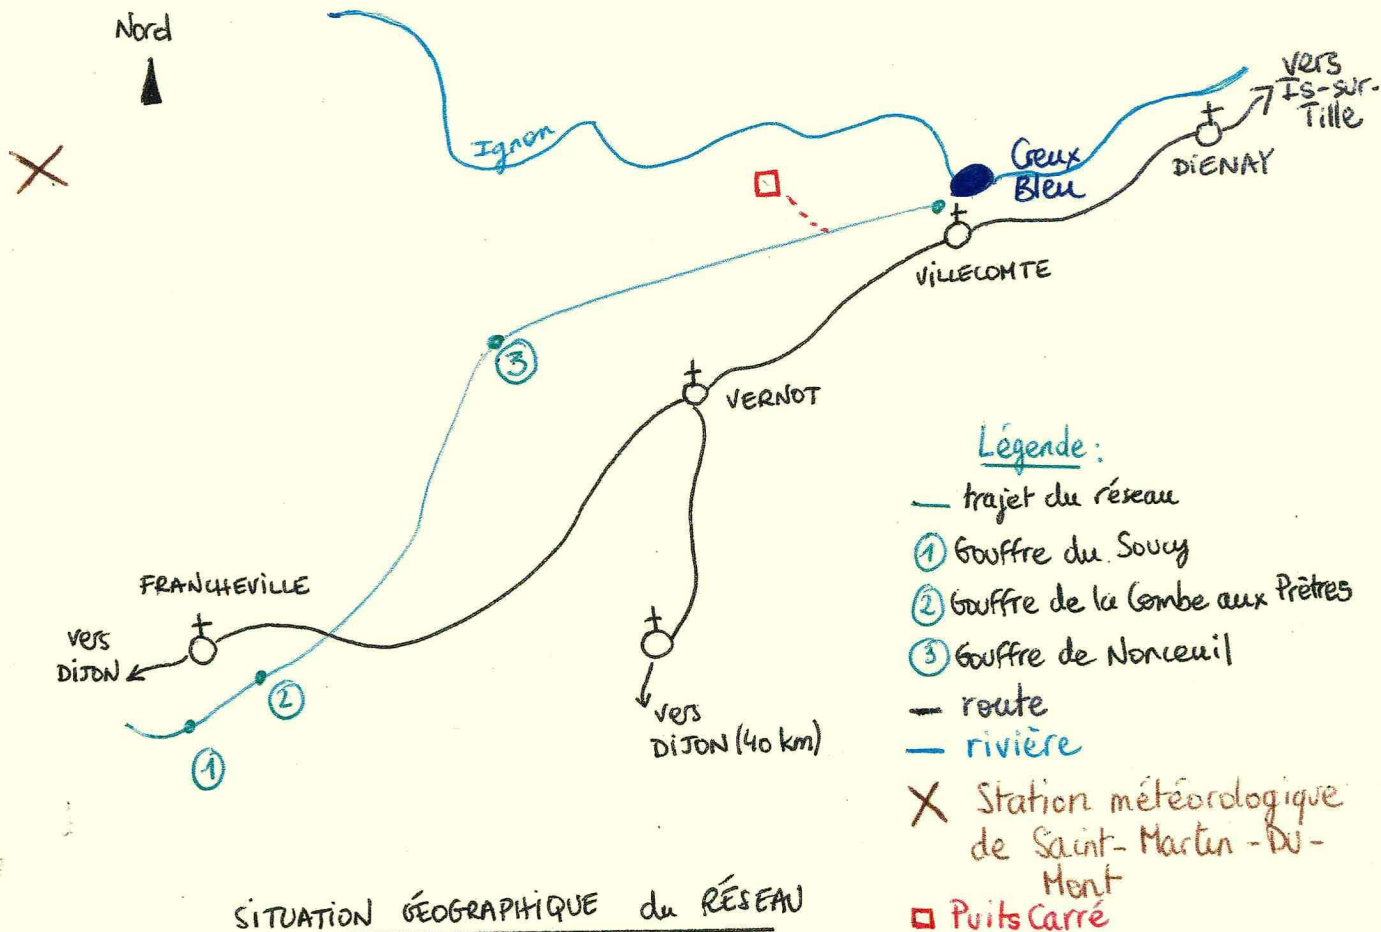 Nord
vers
Is-sur-
Tille
Ignon
Creux
Bleu
DIENAY
VILLECOMTE
3
VERNOT
FRANCHEVILLE
vers
DIJON
2
1
vers
DIJON (40 km)
Légende :
trajet du réseau
1 Gouffre du Soucy
2 Gouffre de la Combe aux Prêtres
3 Gouffre de Nonceuil
route
rivière
Station météorologique
de Saint-Martin-Du-
Mont
Puits Carré
SITUATION GÉOGRAPHIQUE du RÉSEAU